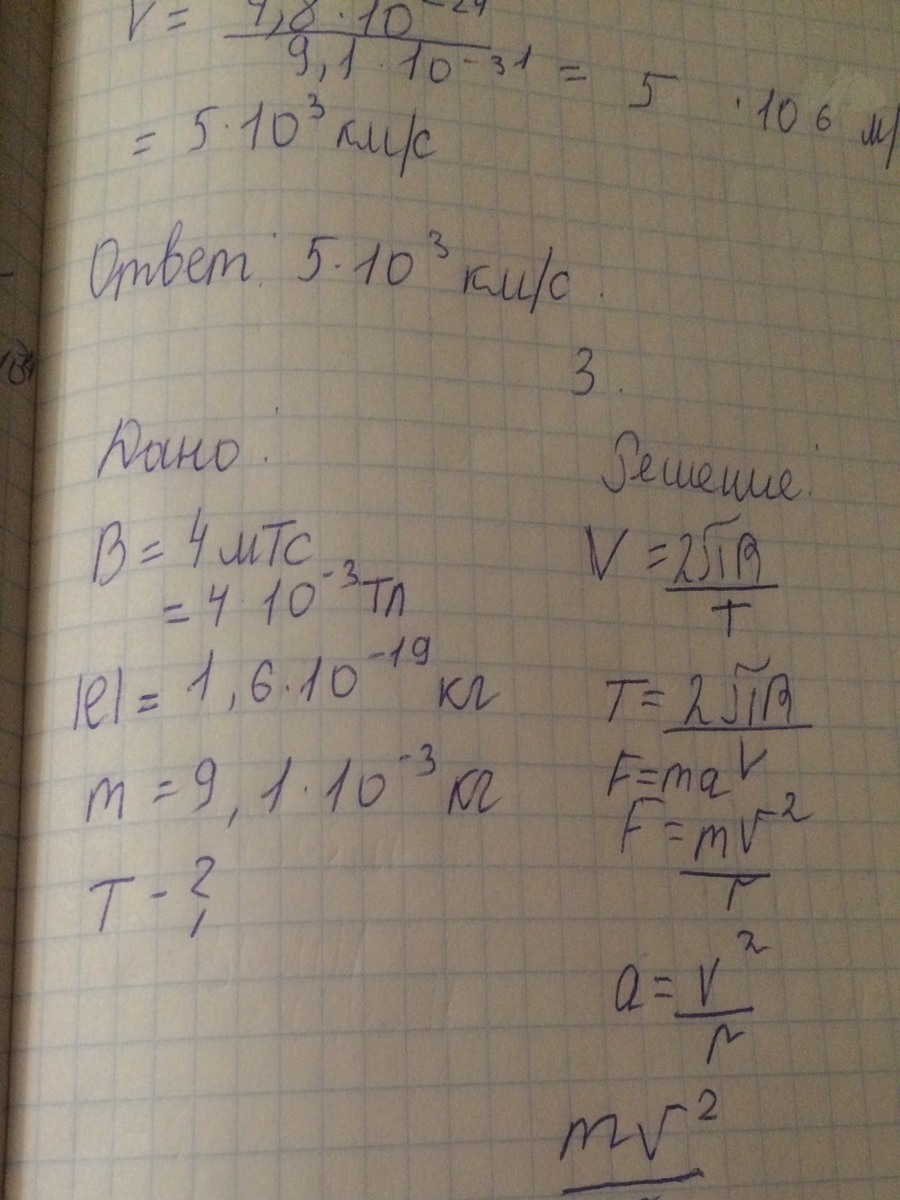 V = 4,8 · 10⁻²⁴ / 9,1 · 10⁻³¹ = 5 · 10 6 м/
= 5·10³ км/с
Ответ: 5·10³ км/с.
3.
Дано:
B = 4 мТс
= 4 10⁻³ Тл
|e| = 1,6·10⁻¹⁹ кг
m = 9,1·10⁻³ кг
T - ?
Решение:
V = 2πR / T
T = 2πR / V
F = ma
F = mV² / r
a = V² / r
mV²